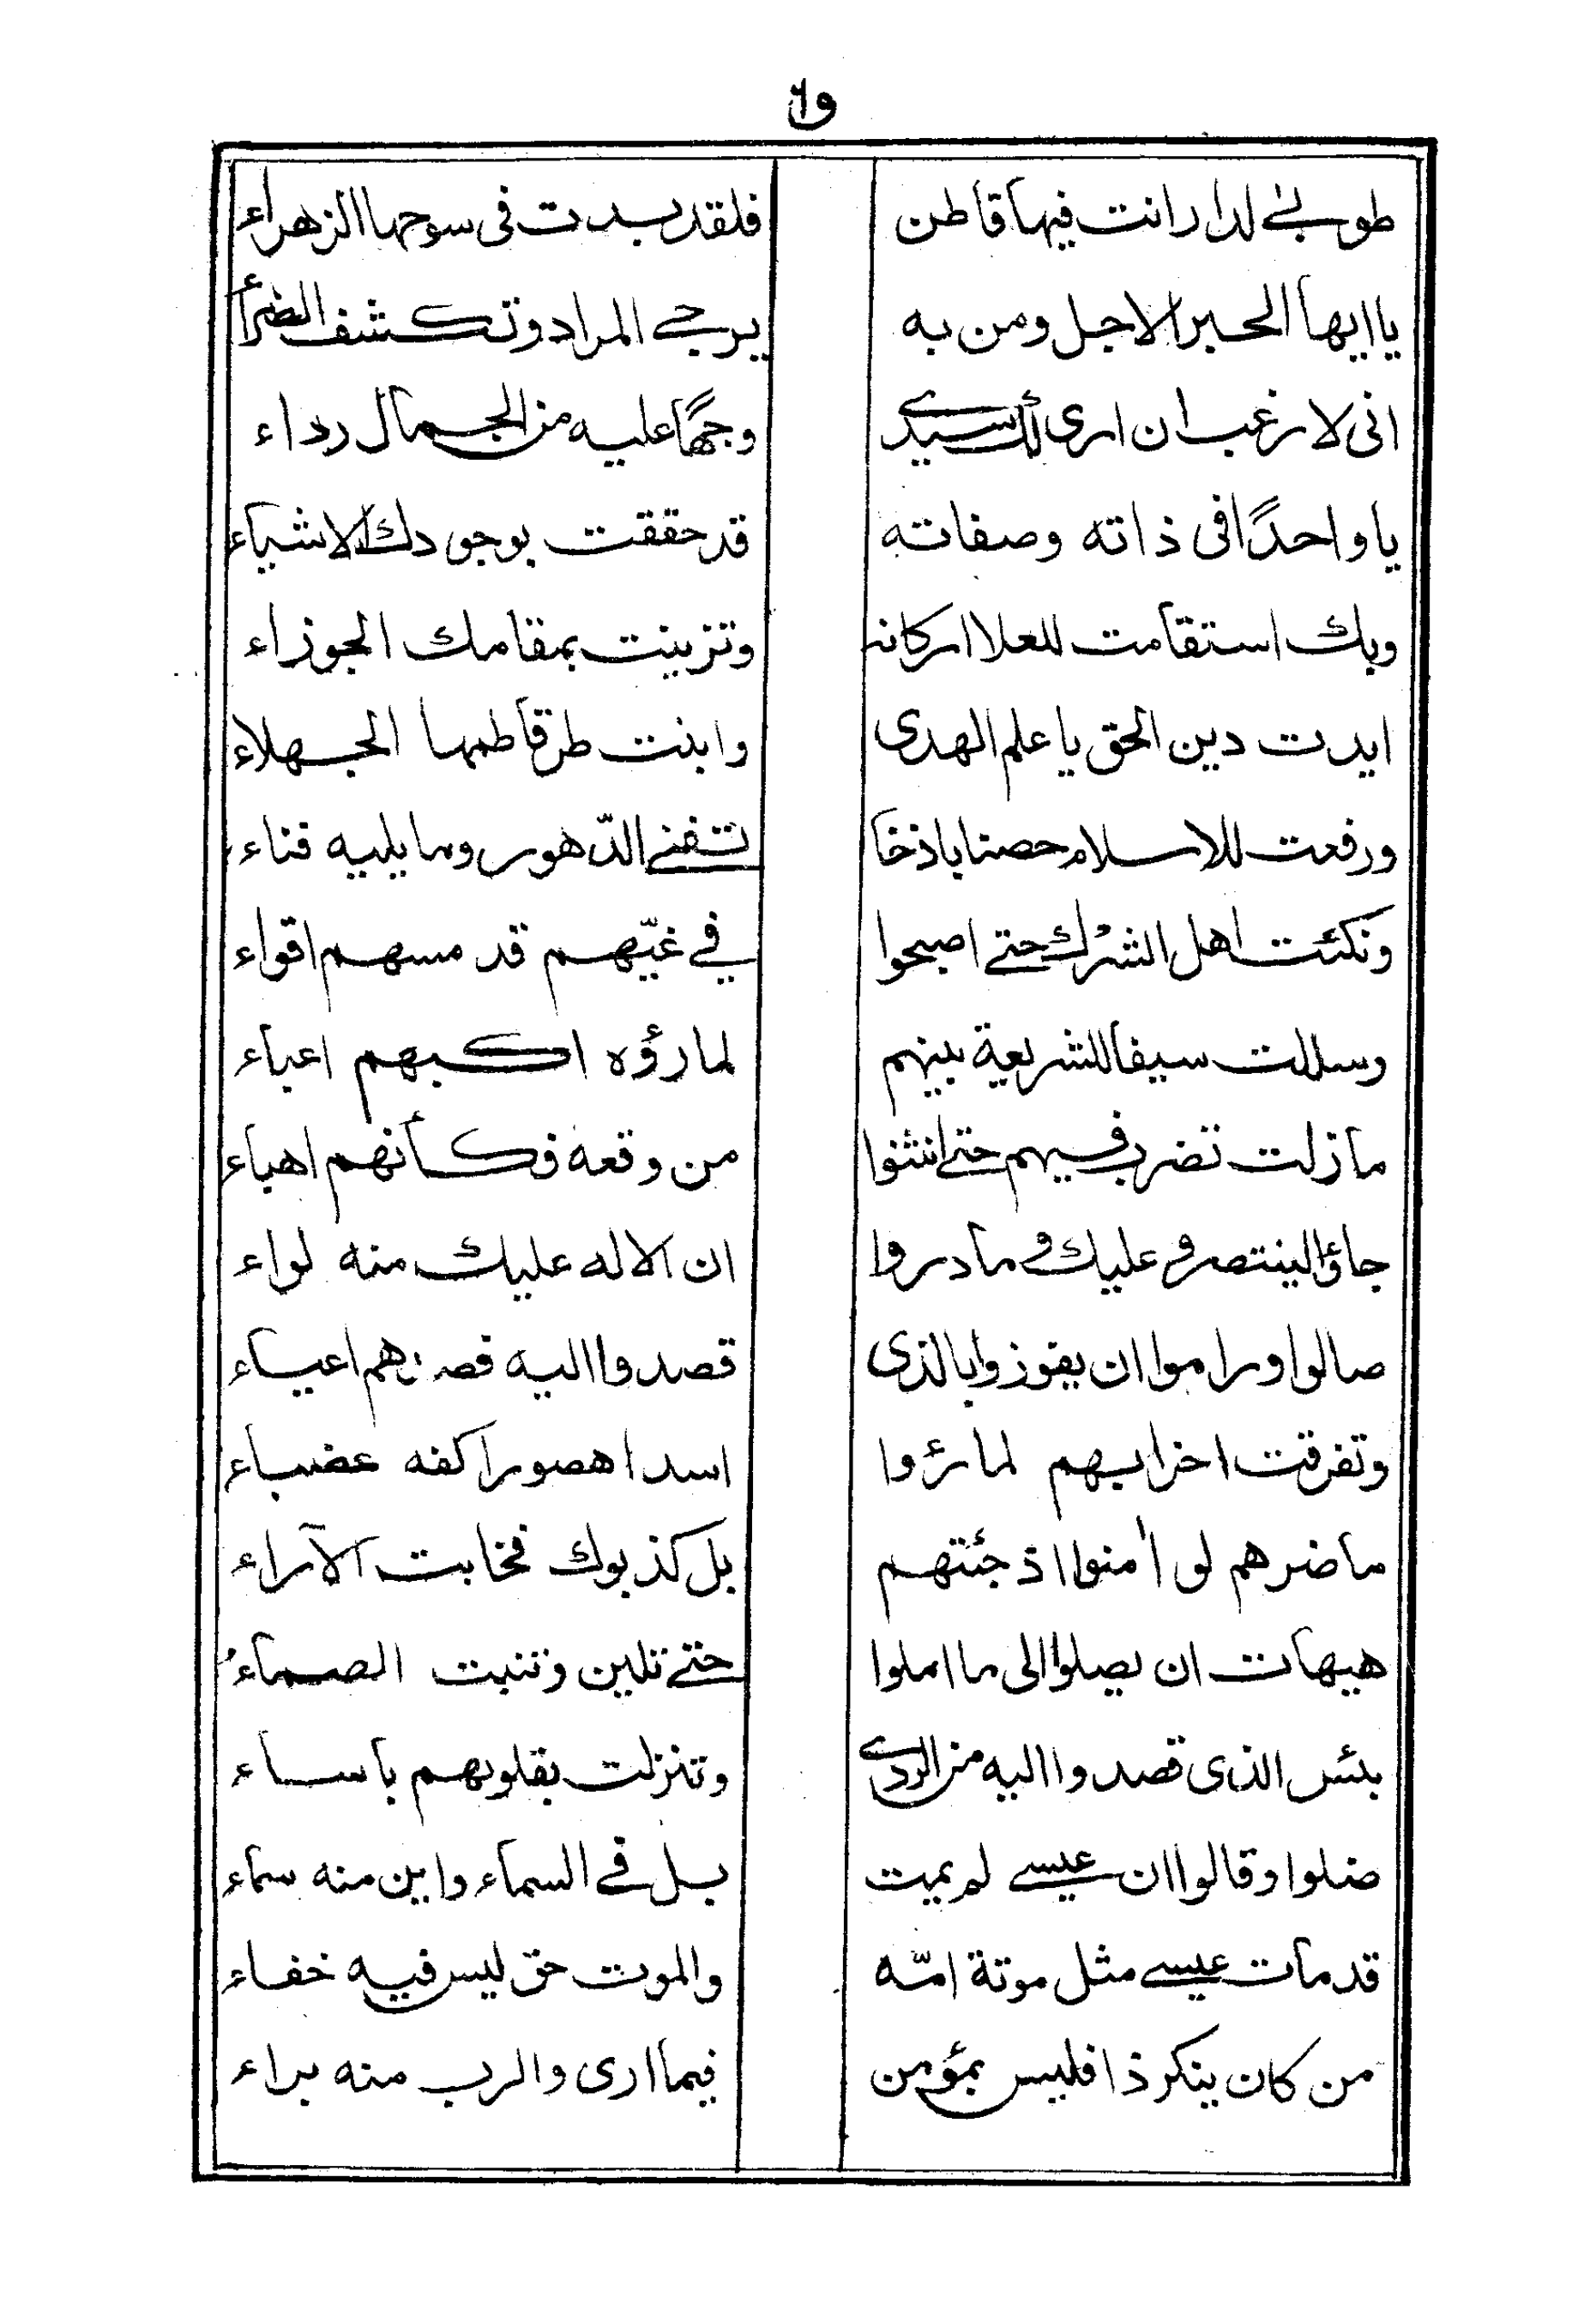 طوبى لدار انت فيها قاطن فلقد بدت فى سوحها الزهراء
يا ايها الحبر الاجل ومن به يرجى المراد وتكشف الضرأ
انى لارغب ان ارى لك سيدى وجهًا عليه من الجمال رداء
يا واحدًا فى ذاته وصفاته قد حققت بوجودك الاشياء
وبك استقامت للعلا اركانه وتزينت بمقامك الجوزاء
ايدت دين الحق يا علم الهدى وابنت طرقا طمها الجهلاء
ورفعت للاسلام حصنا باذخا تفنى الدّهور وما يليه فناء
ونكئت اهل الشرك حتى اصبحوا في غيّهم قد مسهم اقواء
وسللت سيفا للشريعة بينهم لما رؤه اكبهم اعباء
ما زلت تضرب فيهم حتى انثنوا من وقعه فكأنهم اهباء
جاؤا لينتصروا عليك وما دروا ان الاله عليك منه لواء
صالوا وراموا ان يفوزوا بالذى قصدوا اليه فصدهم اعياء
وتفرقت احزابهم لما رؤا اسدا هصورا كفه عضباء
ما ضرهم لو اٰمنوا اذ جئتهم بل كذبوك فخابت الآراء
هيهات ان يصلوا الى ما املوا حتى تلين وتنبت الصماءُ
بئس الذى قصدوا اليه من الردى وتنزلت بقلوبهم بأساء
ضلوا وقالوا ان عيسى لم يمت بل في السماء واين منه سماء
قد مات عيسى مثل موتة امّه والموت حق ليس فيه خفاء
من كان ينكر ذا فليس بمؤمن فيما ارى والرب منه براء